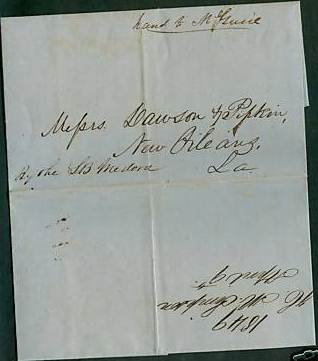 hand to McGuire
Messrs. Dawson & Pipkin,
New Orleans,
By the SB Medora La
1849
H. M. Simpson
April 9